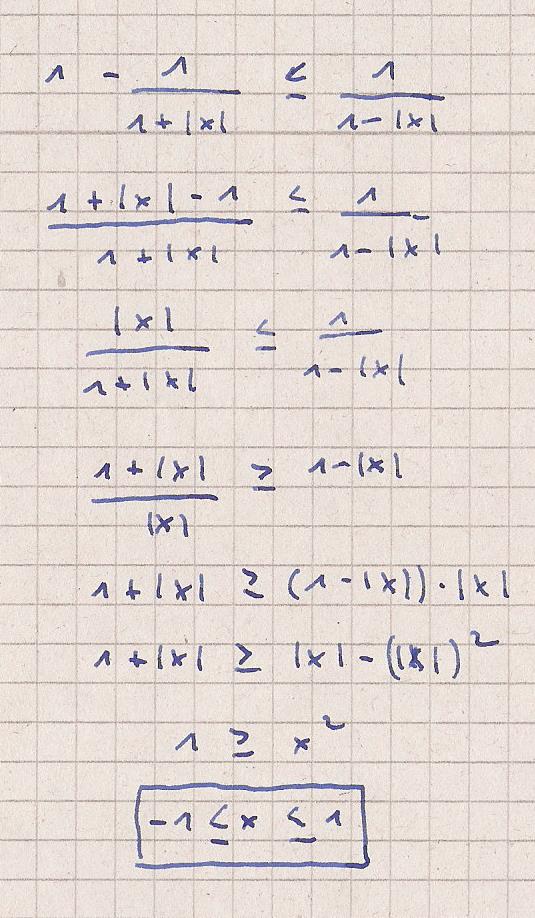 1 - 1/(1+|x|) ≤ 1/(1-|x|)
(1+|x|-1)/(1+|x|) ≤ 1/(1-|x|)
|x|/(1+|x|) ≤ 1/(1-|x|)
(1+|x|)/|x| ≥ 1-|x|
1+|x| ≥ (1-|x|)·|x|
1+|x| ≥ |x|-(|x|)²
1 ≥ x²
-1 ≤ x ≤ 1